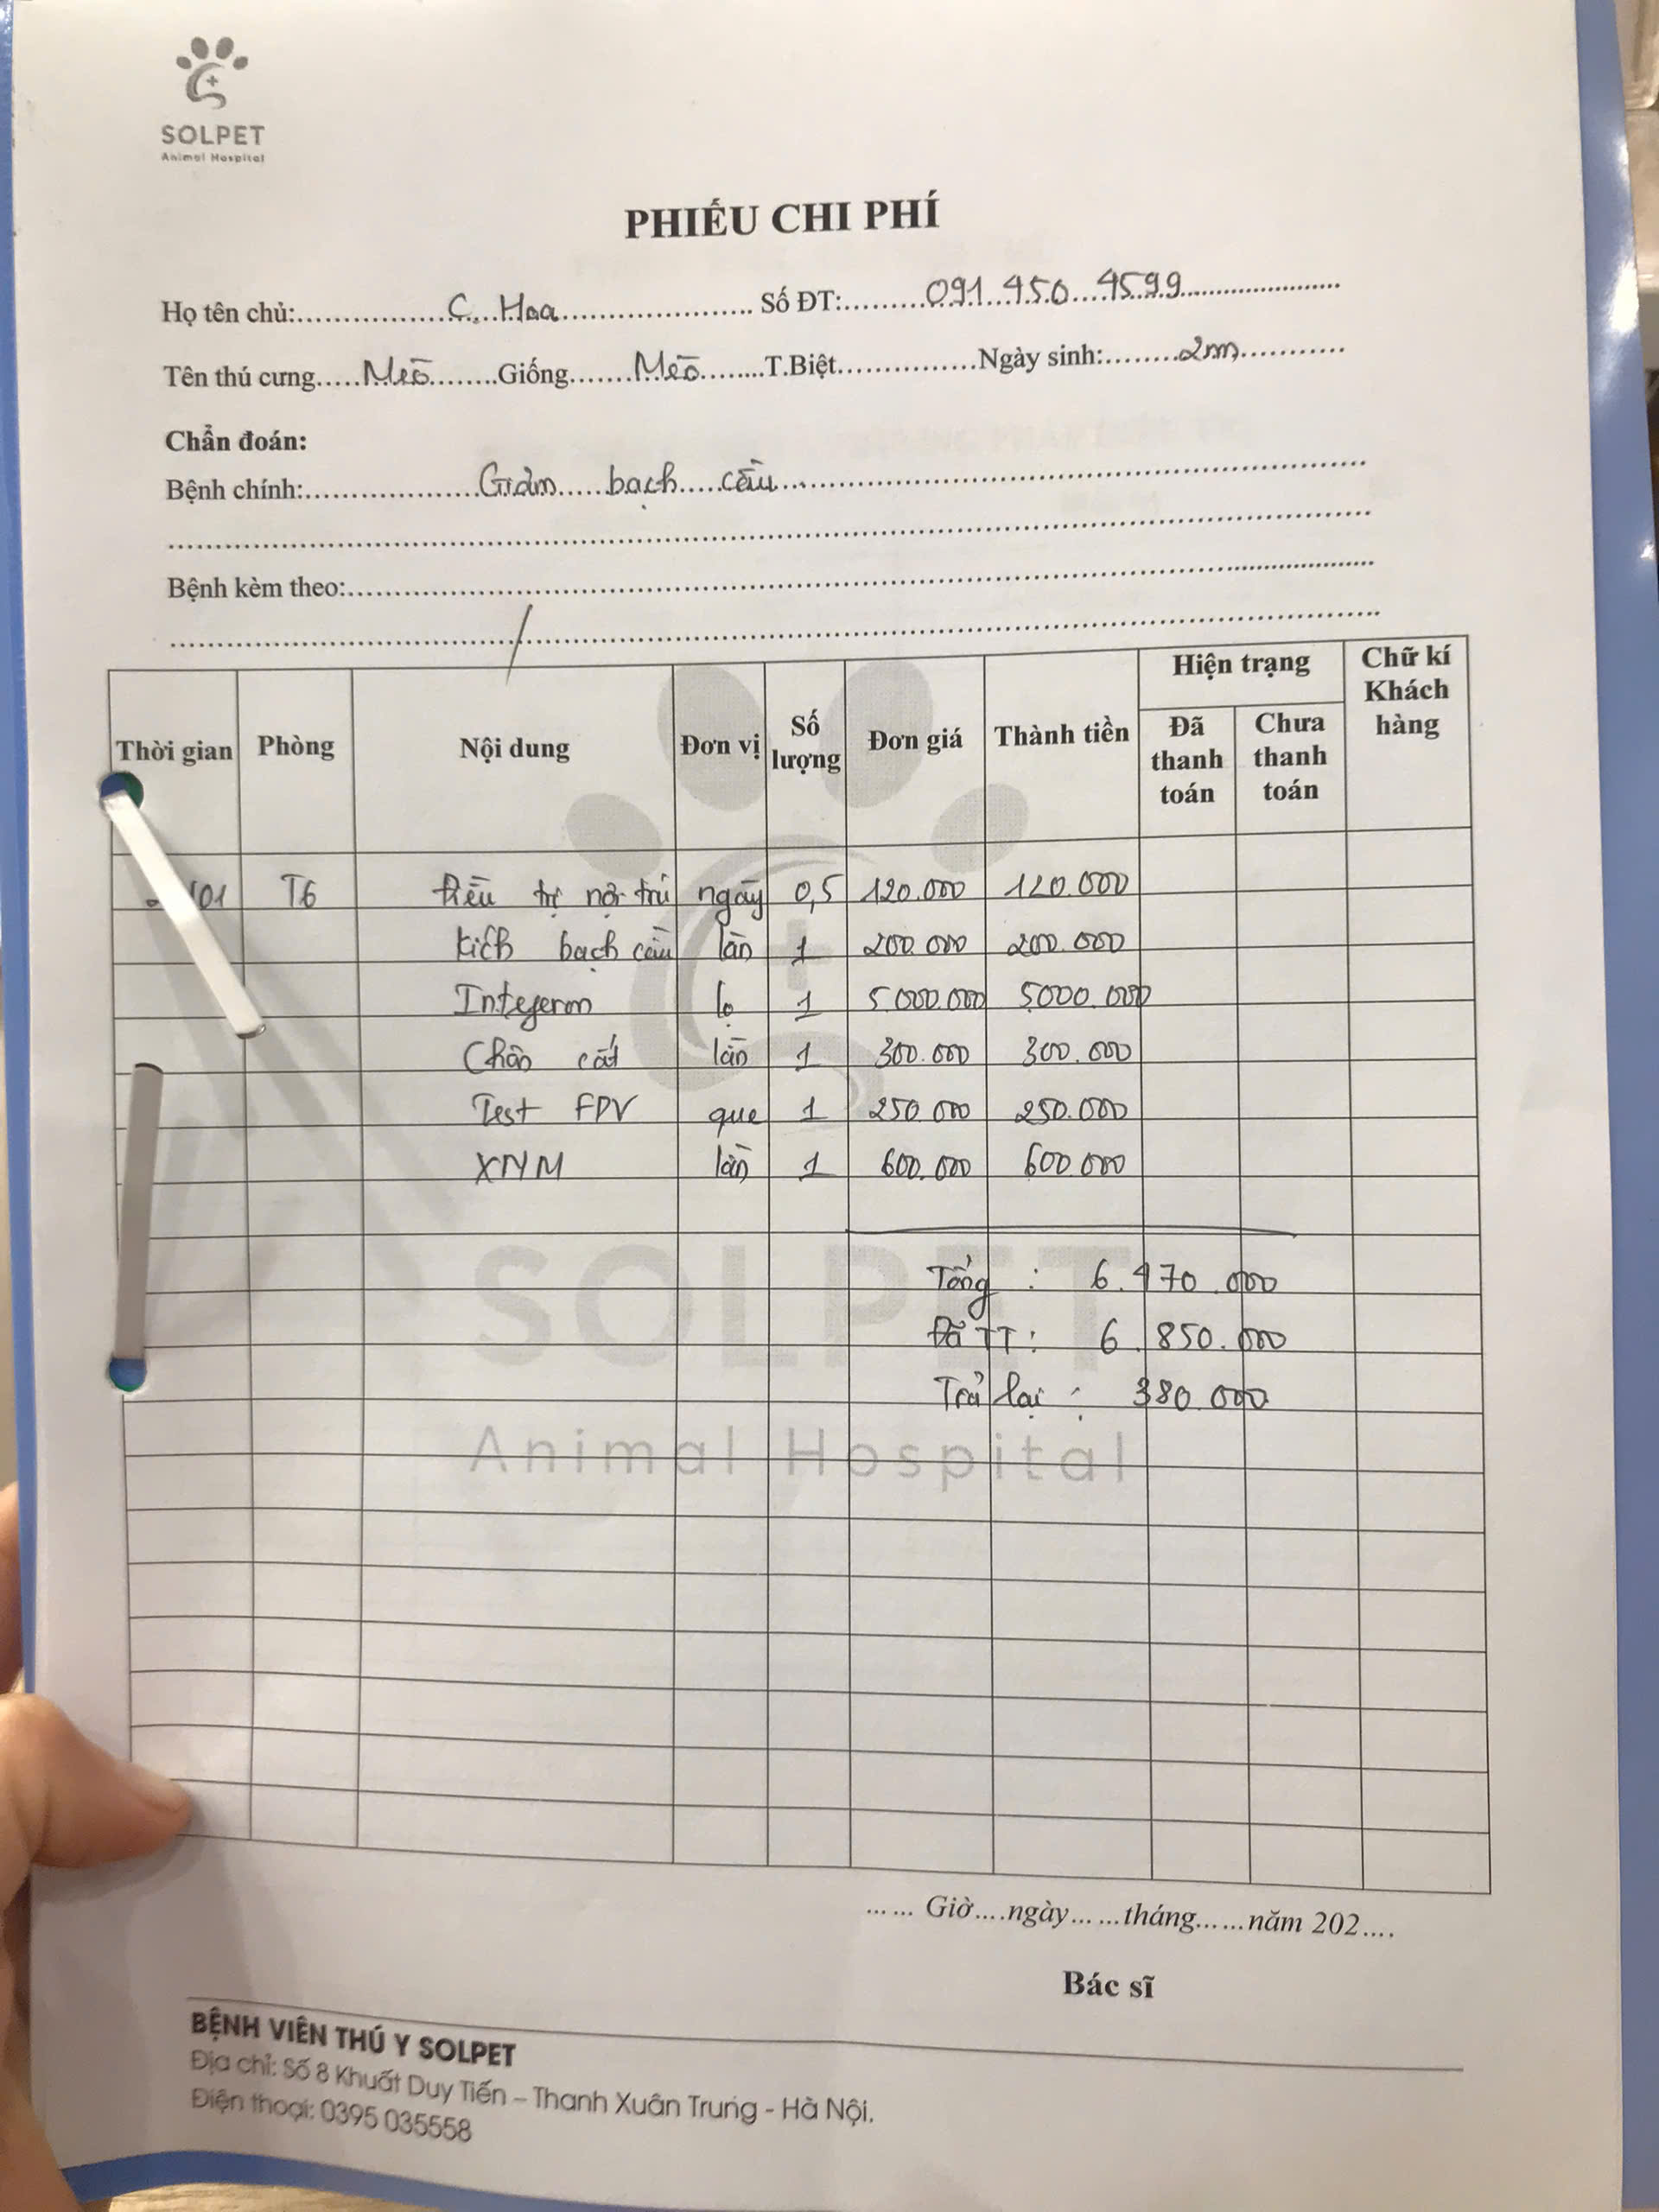 SOLPET
Animal Hospital
PHIẾU CHI PHÍ
Họ tên chủ: C. Hoa Số ĐT: 091 450 4599
Tên thú cưng Mèo Giống Mèo T.Biệt Ngày sinh: 2m
Chẩn đoán:
Bệnh chính: Giảm bạch cầu
Bệnh kèm theo:
Thời gian Phòng Nội dung Đơn vị Số lượng Đơn giá Thành tiền Hiện trạng Đã thanh toán Chưa thanh toán Chữ kí Khách hàng
/01 T6 Điều trị nội trú ngày 0,5 120.000 120.000
Kích bạch cầu lần 1 200.000 200.000
Inteferon lọ 1 5.000.000 5.000.000
Chân cắt lần 1 300.000 300.000
Test FPV que 1 250.000 250.000
XNM lần 1 600.000 600.000
Tổng : 6.470.000
Đã TT : 6.850.000
Trả lại : 380.000
SOLPET
Animal Hospital
...... Giờ....ngày......tháng......năm 202....
Bác sĩ
BỆNH VIÊN THÚ Y SOLPET
Địa chỉ: Số 8 Khuất Duy Tiến – Thanh Xuân Trung - Hà Nội.
Điện thoại: 0395 035558